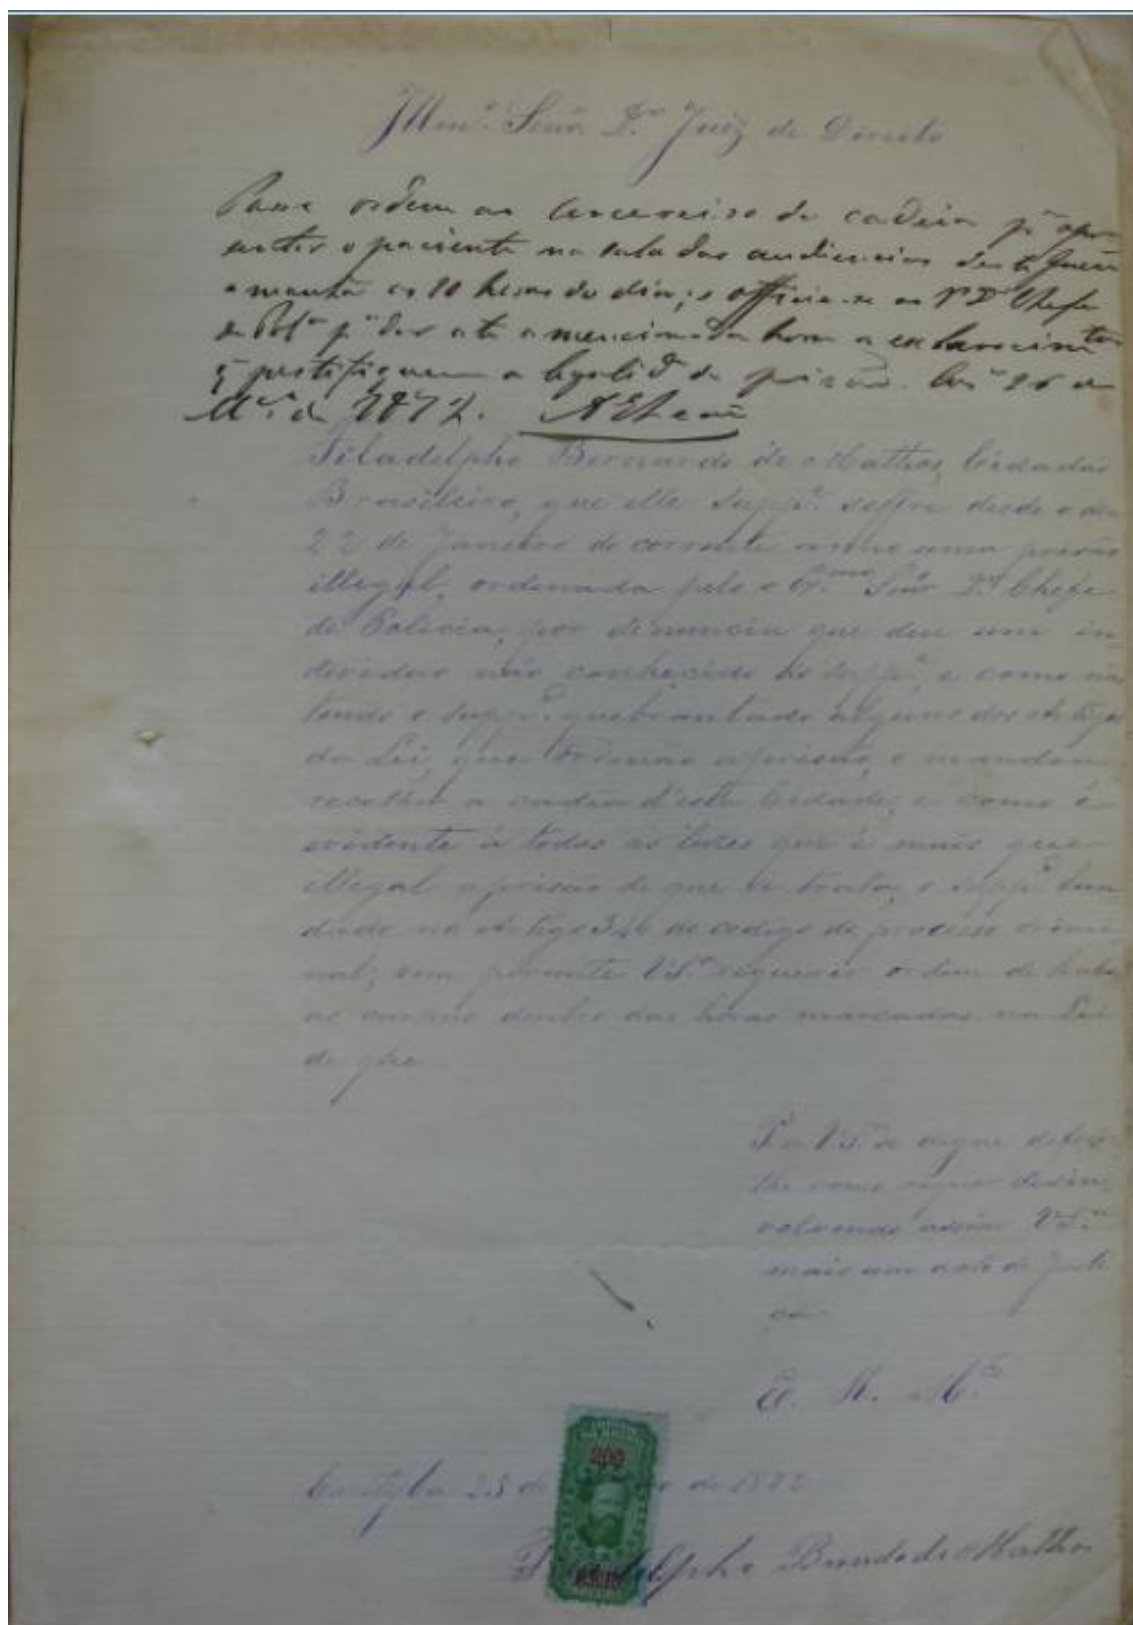 Illmo. Senr. Dr. Juiz de Direito
Passe ordem ao carcereiro da cadeia pa. apre
sentar o paciente na sala das audiencias deste
amanhã as 10 horas do dia; e officie-se ao Dr. Chefe
de Pola. pa. dar até a mencionada hora os esclarecimtos
q justifiquem a legalide. da prisão. 26 de
de 1872.
Filadelpho Bernardo de Mathos, Cidadão
Brasileiro, que elle Suppe. soffre desde o dia
22 de Janeiro do corrente anno uma prisão
illegal, ordenada pelo Senr. Dr. Chefe
de Policia, por denuncia que deu um in-
devido não conhecido do Suppe. e como não
tendo o Suppe. quebrantado alguns dos Artigos
da Lei, que ordenão a prisão, e mandou
recolher a cadêa d'esta Cidade, e como é
evidente à todas as luzes que é mais que
illegal a prisão de que se trata, o Suppe. fun
dado no Artigo 340 do codigo do processo crimi
nal, vem perante V.Sa. requerer ordem de habe
as corpus dentro das horas marcadas na Lei
de que
P. a V.Sa. se digne deferir
lhe como requer desen
volvendo assim V.Sa.
mais um acto de justi
ça
E. R. Mce.
Curityba 25 de de 1872
Bernardo de Mathos
200
REIS